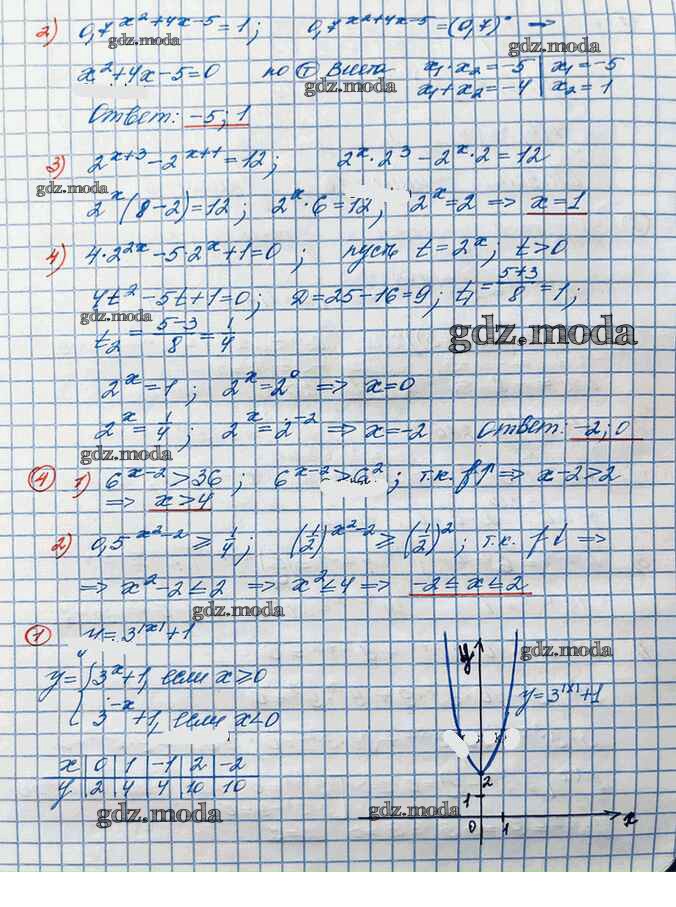 2) 0,7^(x²+4x-5) = 1; 0,7^(x²+4x-5) = (0,7)° →
gdz.moda
gdz.moda
x²+4x-5=0 по (Т) Виета x₁·x₂=-5 | x₁=-5
gdz.moda
x₁+x₂=-4 | x₂=1
Ответ: -5; 1
gdz.moda
3) 2^(x+3) - 2^(x+1) = 12; 2^x·2³ - 2^x·2 = 12
gdz.moda
2^x(8-2)=12; 2^x·6=12, 2^x=2 => x=1
4) 4·2^(2x) - 5·2^x + 1 = 0; пусть t=2^x; t>0
4t² - 5t + 1 = 0; D=25-16=9; t₁ = (5+3)/8 = 1;
gdz.moda
t₂ = (5-3)/8 = 1/4
gdz.moda
2^x=1; 2^x=2⁰ => x=0
2^x = 1/4; 2^x = 2^(-2) => x=-2 Ответ: -2; 0
gdz.moda
④ 1) 6^(x-2) > 36; 6^(x-2) > 6²; т.к. f↑ => x-2>2
=> x>4
2) 0,5^(x²-2) ≥ 1/4; (1/2)^(x²-2) ≥ (1/2)²; т.к. f↓ =>
=> x²-2≤2 => x²≤4 => -2≤x≤2
gdz.moda
① y=3^|x|+1
gdz.moda
y= { 3^x+1, если x≥0
3^(-x)+1, если x<0
y
y=3^|x|+1
x | 0 | 1 | -1 | 2 | -2
y | 2 | 4 | 4 | 10 | 10
2
1
gdz.moda
gdz.moda
0 1 x